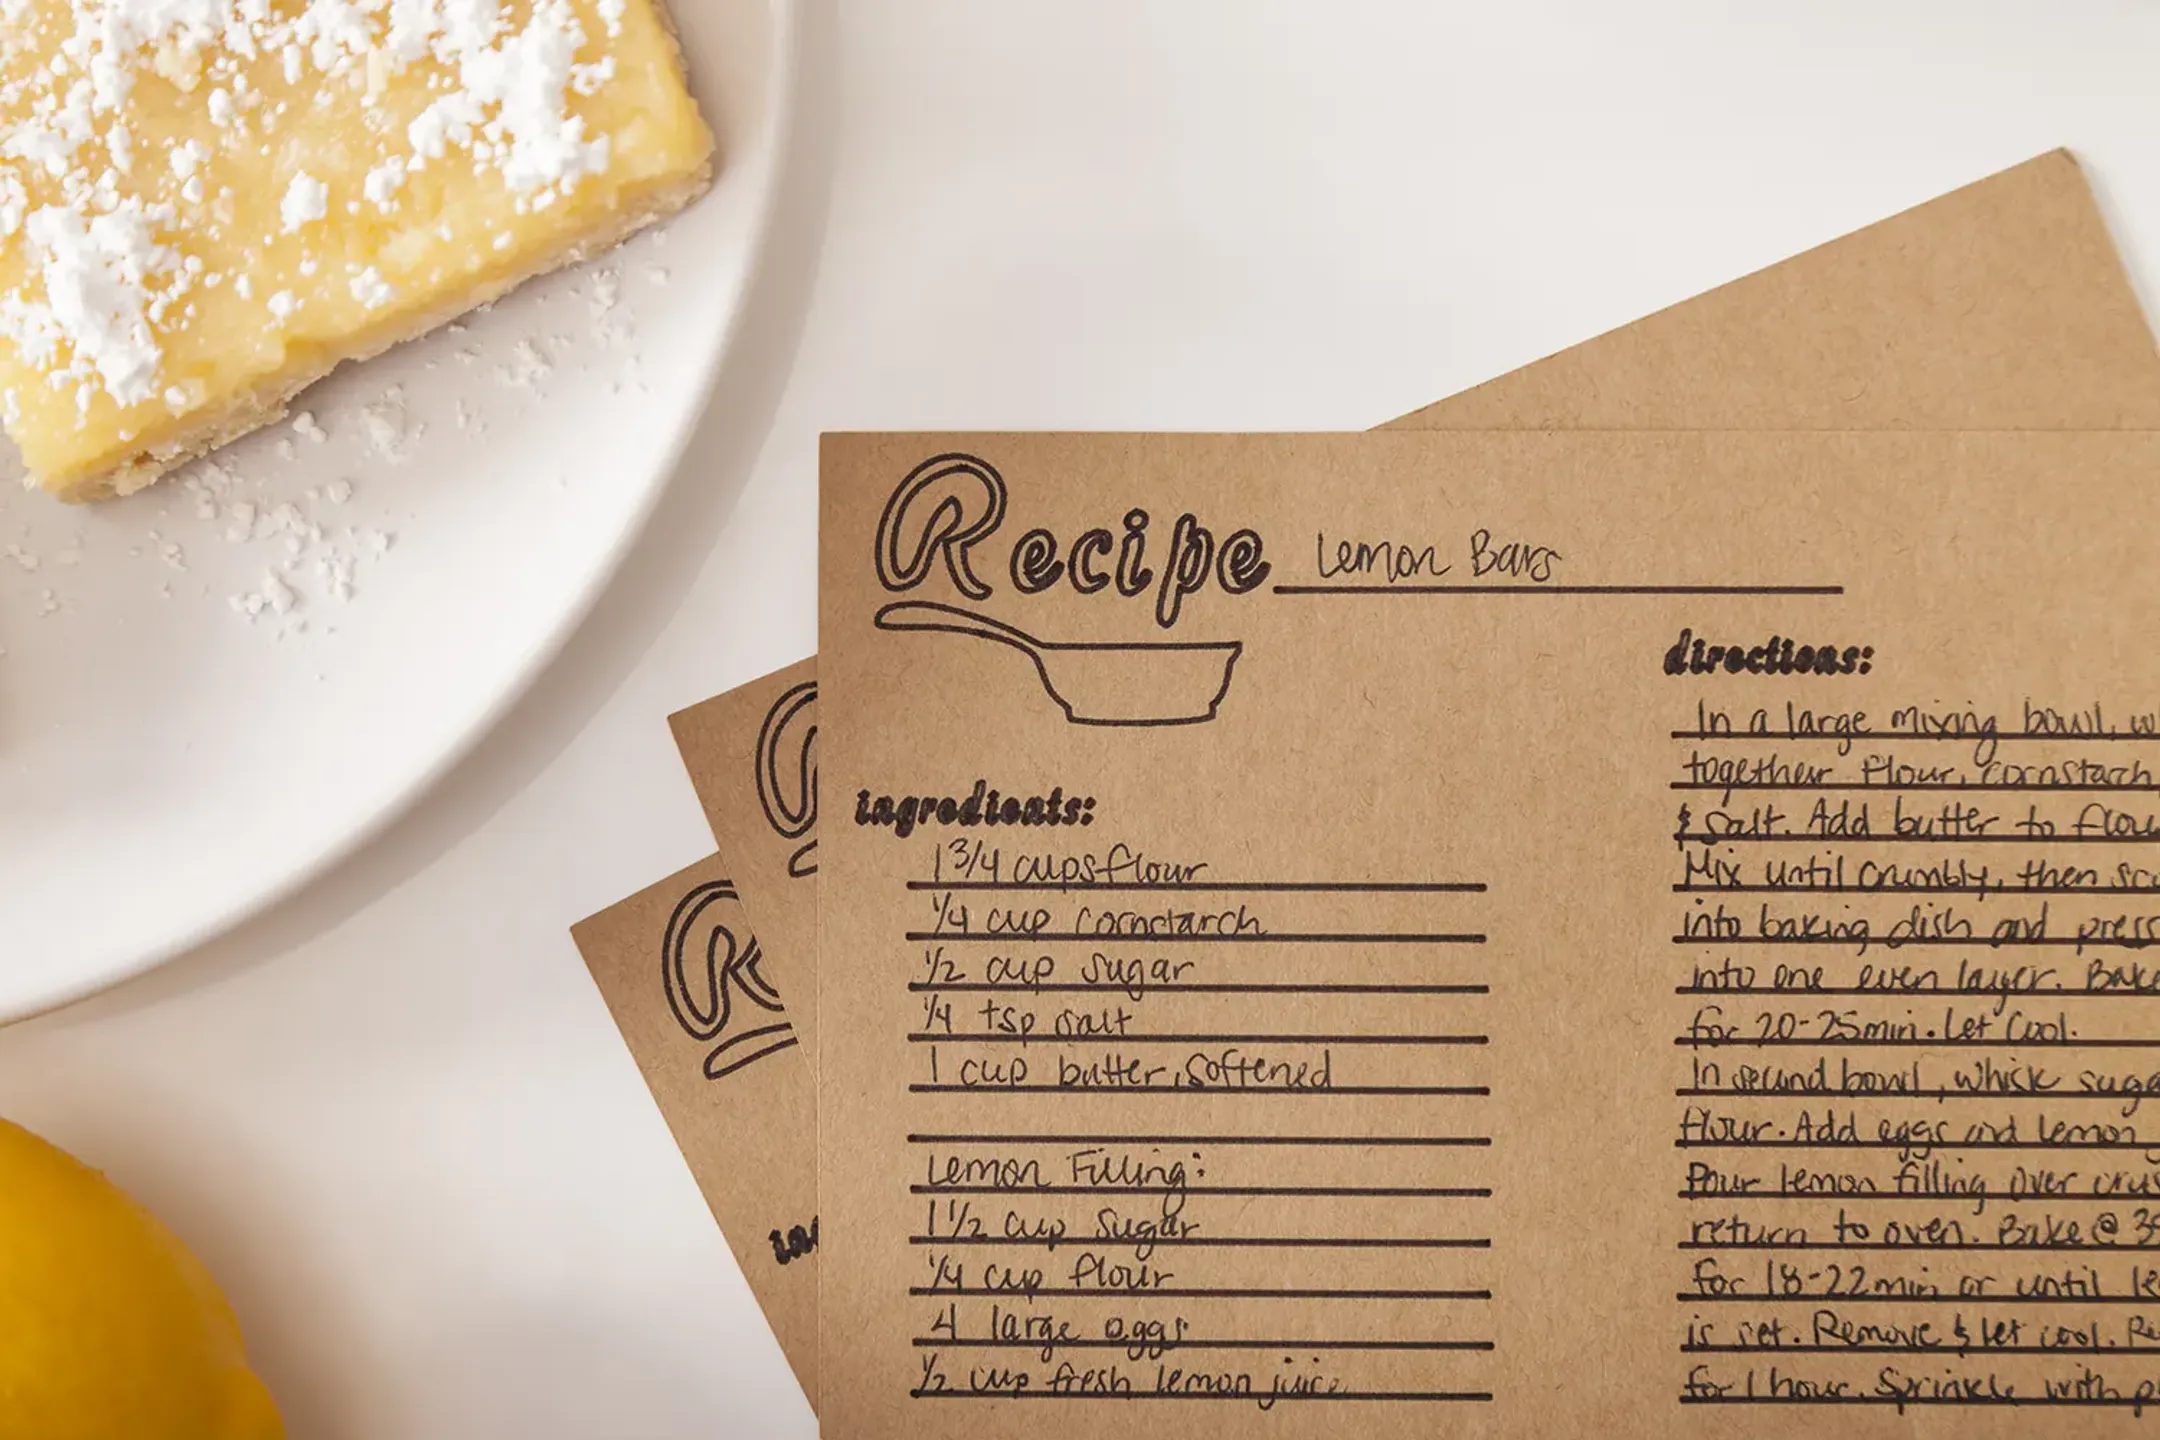 Recipe Lemon Bars
ingredients:
1 3/4 cups flour
1/4 cup cornstarch
1/2 cup sugar
1/4 tsp salt
1 cup butter, softened
Lemon Filling:
1 1/2 cup sugar
1/4 cup flour
4 large eggs
1/2 cup fresh lemon juice
directions:
In a large mixing bowl, w
together flour, cornstarch,
& salt. Add butter to flou
Mix until crumbly, then sc
into baking dish and press
into one even layer. Bake
for 20-25min. Let Cool.
In second bowl, whisk suga
flour. Add eggs and lemon
Pour lemon filling over crus
return to oven. Bake @ 35
for 18-22min or until le
is set. Remove & let cool. Re
for 1 hour. Sprinkle with p
R
R
in